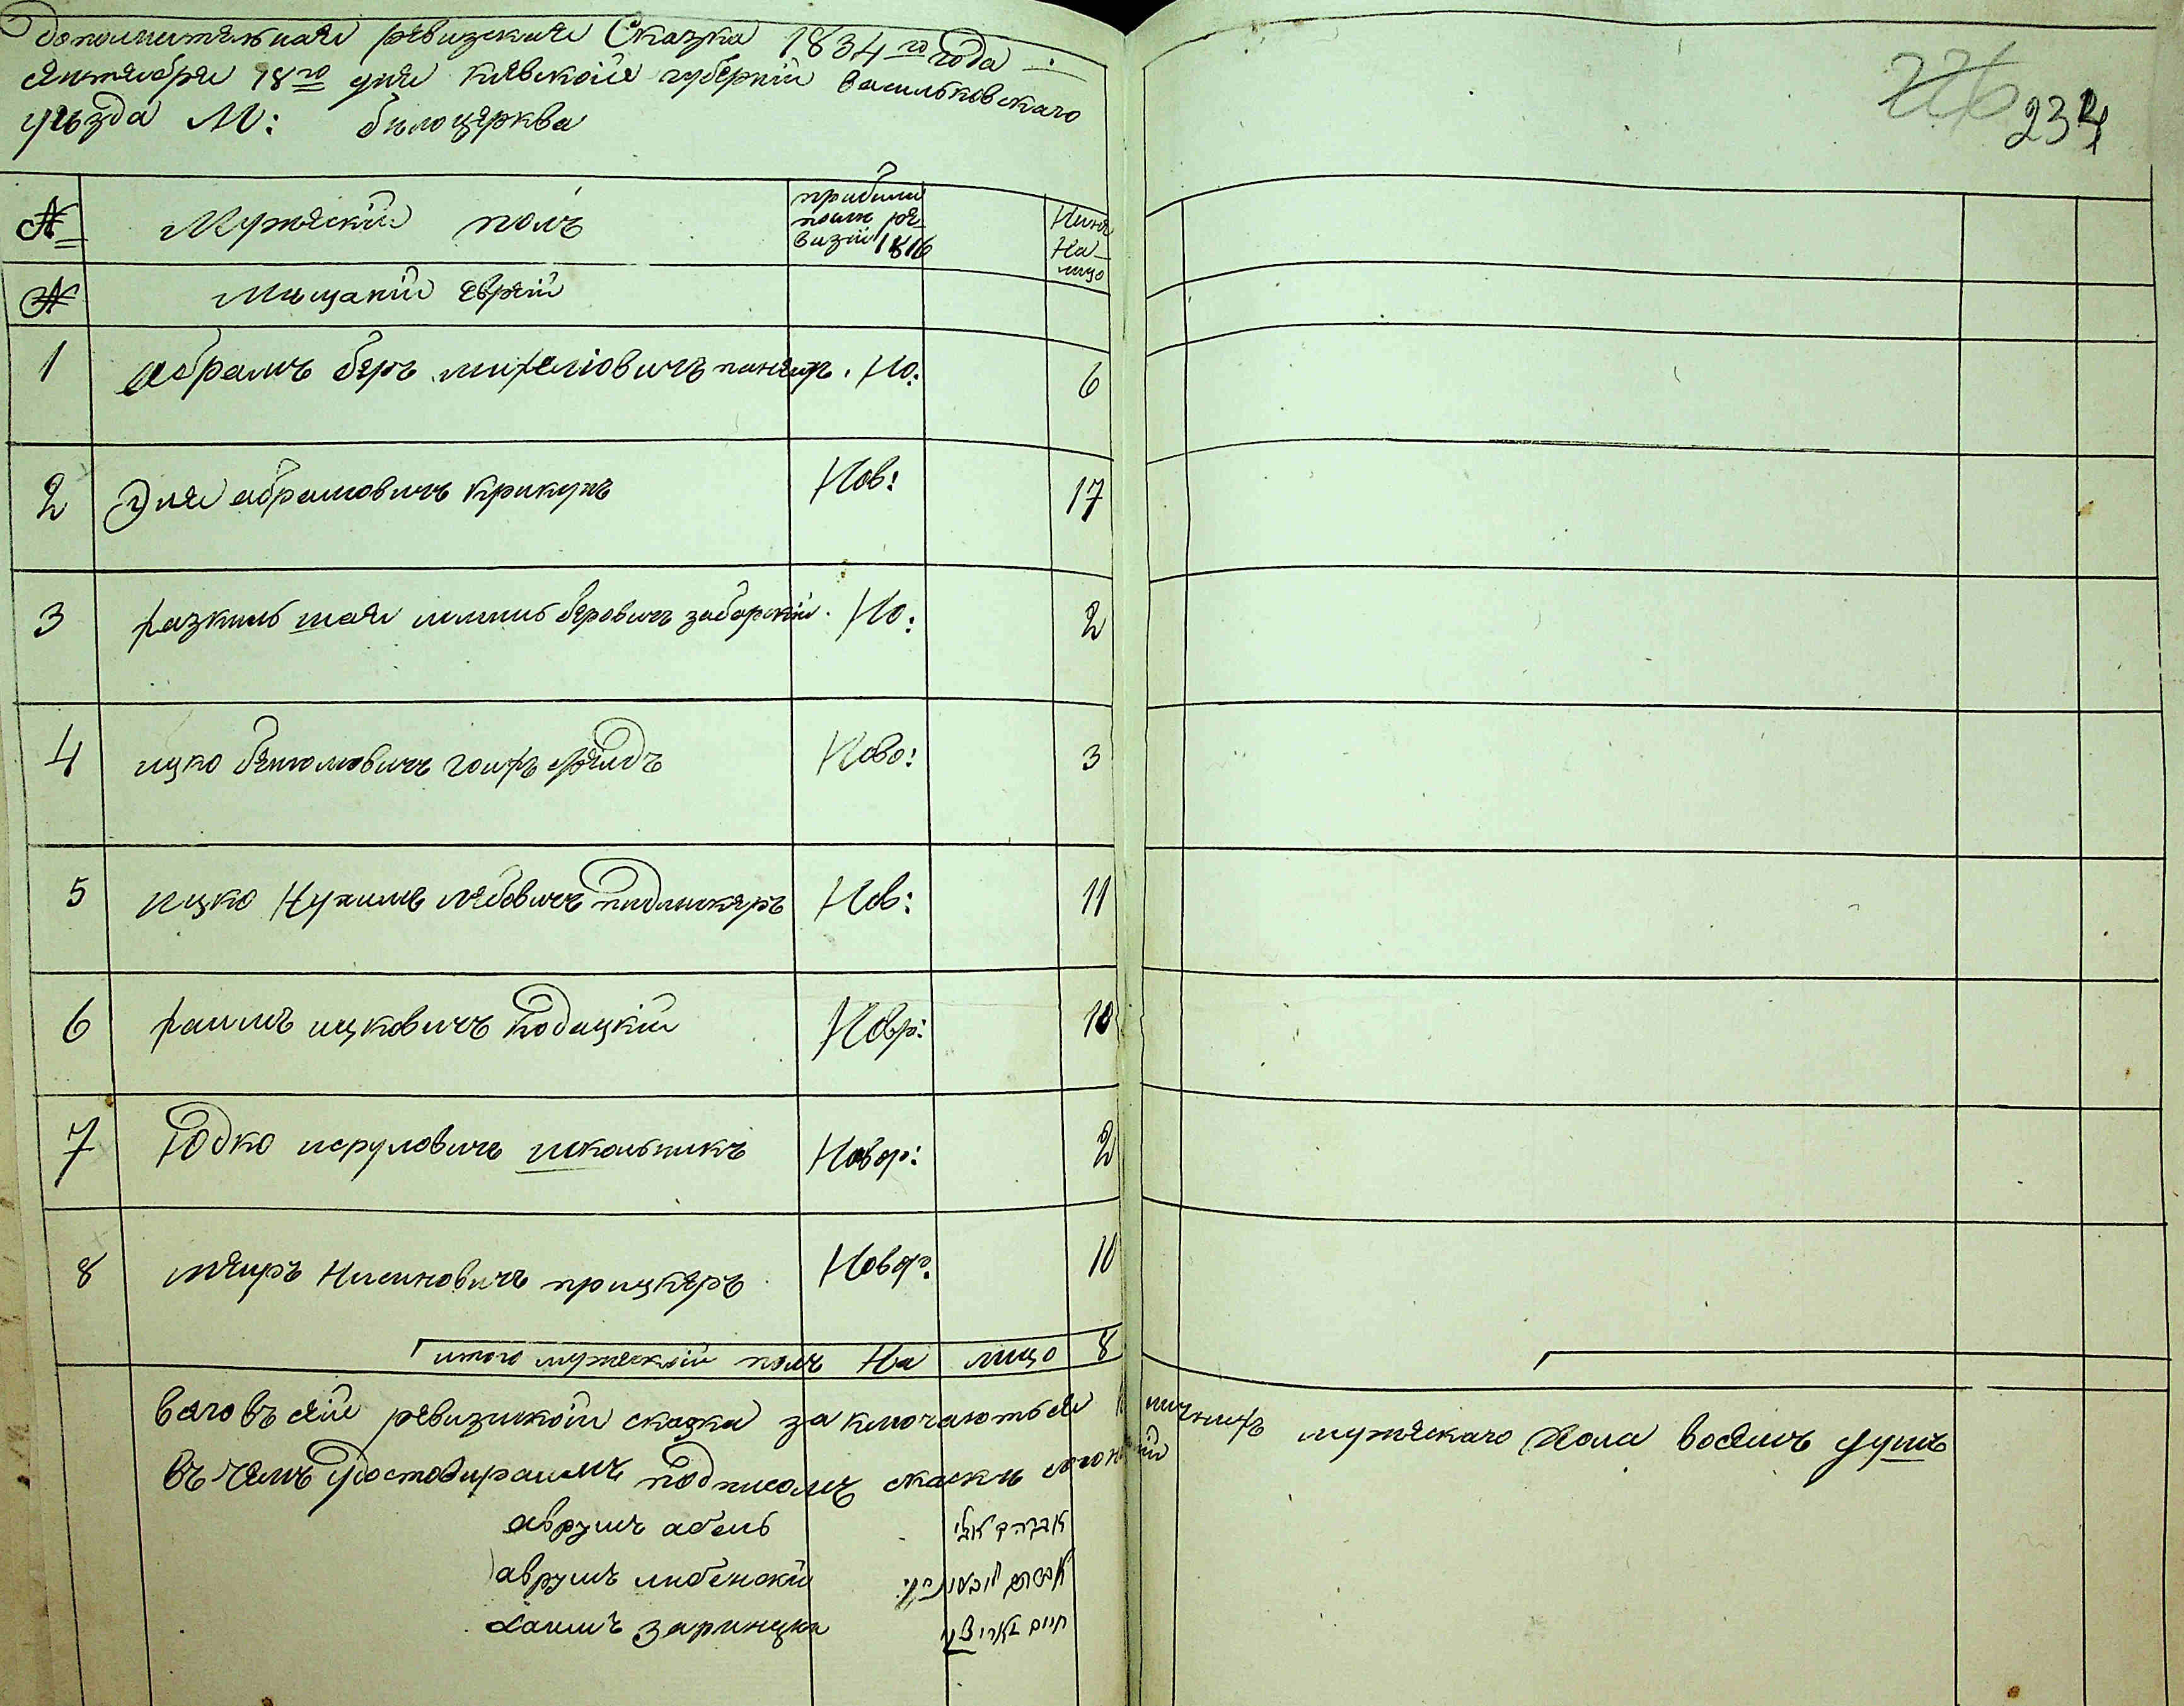 Дополнительная ревизская Сказка 1834го года
сентября 18го дня киевской губернии васильковскаго
уезда М: билоцерква
226 234
№ Мужеский полъ прибили после ревизии 1816 Ныне На лицо
№ Мещаний еврей
1 Абрамъ беръ михелiовичъ Но: 6
2 Эля абрамовичъ крикунъ Нов: 17
3 хазкиль шая беровичъ заборский Но: 2
4 ицко Ново: 3
5 ицко Нухимъ лебовичъ Нов: 11
6 хаимъ ицковичъ кодацкий Новр: 10
7 Юдко исруловичъ школьникъ Новор: 2
8 меиръ Нисиновичъ прицкеръ Новор: 10
итого мужеской полъ На лицо 8
всего въ сей ревизской сказка заключаються наличныхъ мужескаго пола восемъ душъ
въ чемъ удостовираемъ подписомъ
аврумъ абель אברהם אבלי
аврумъ любенский
хаимъ заринцки חיים